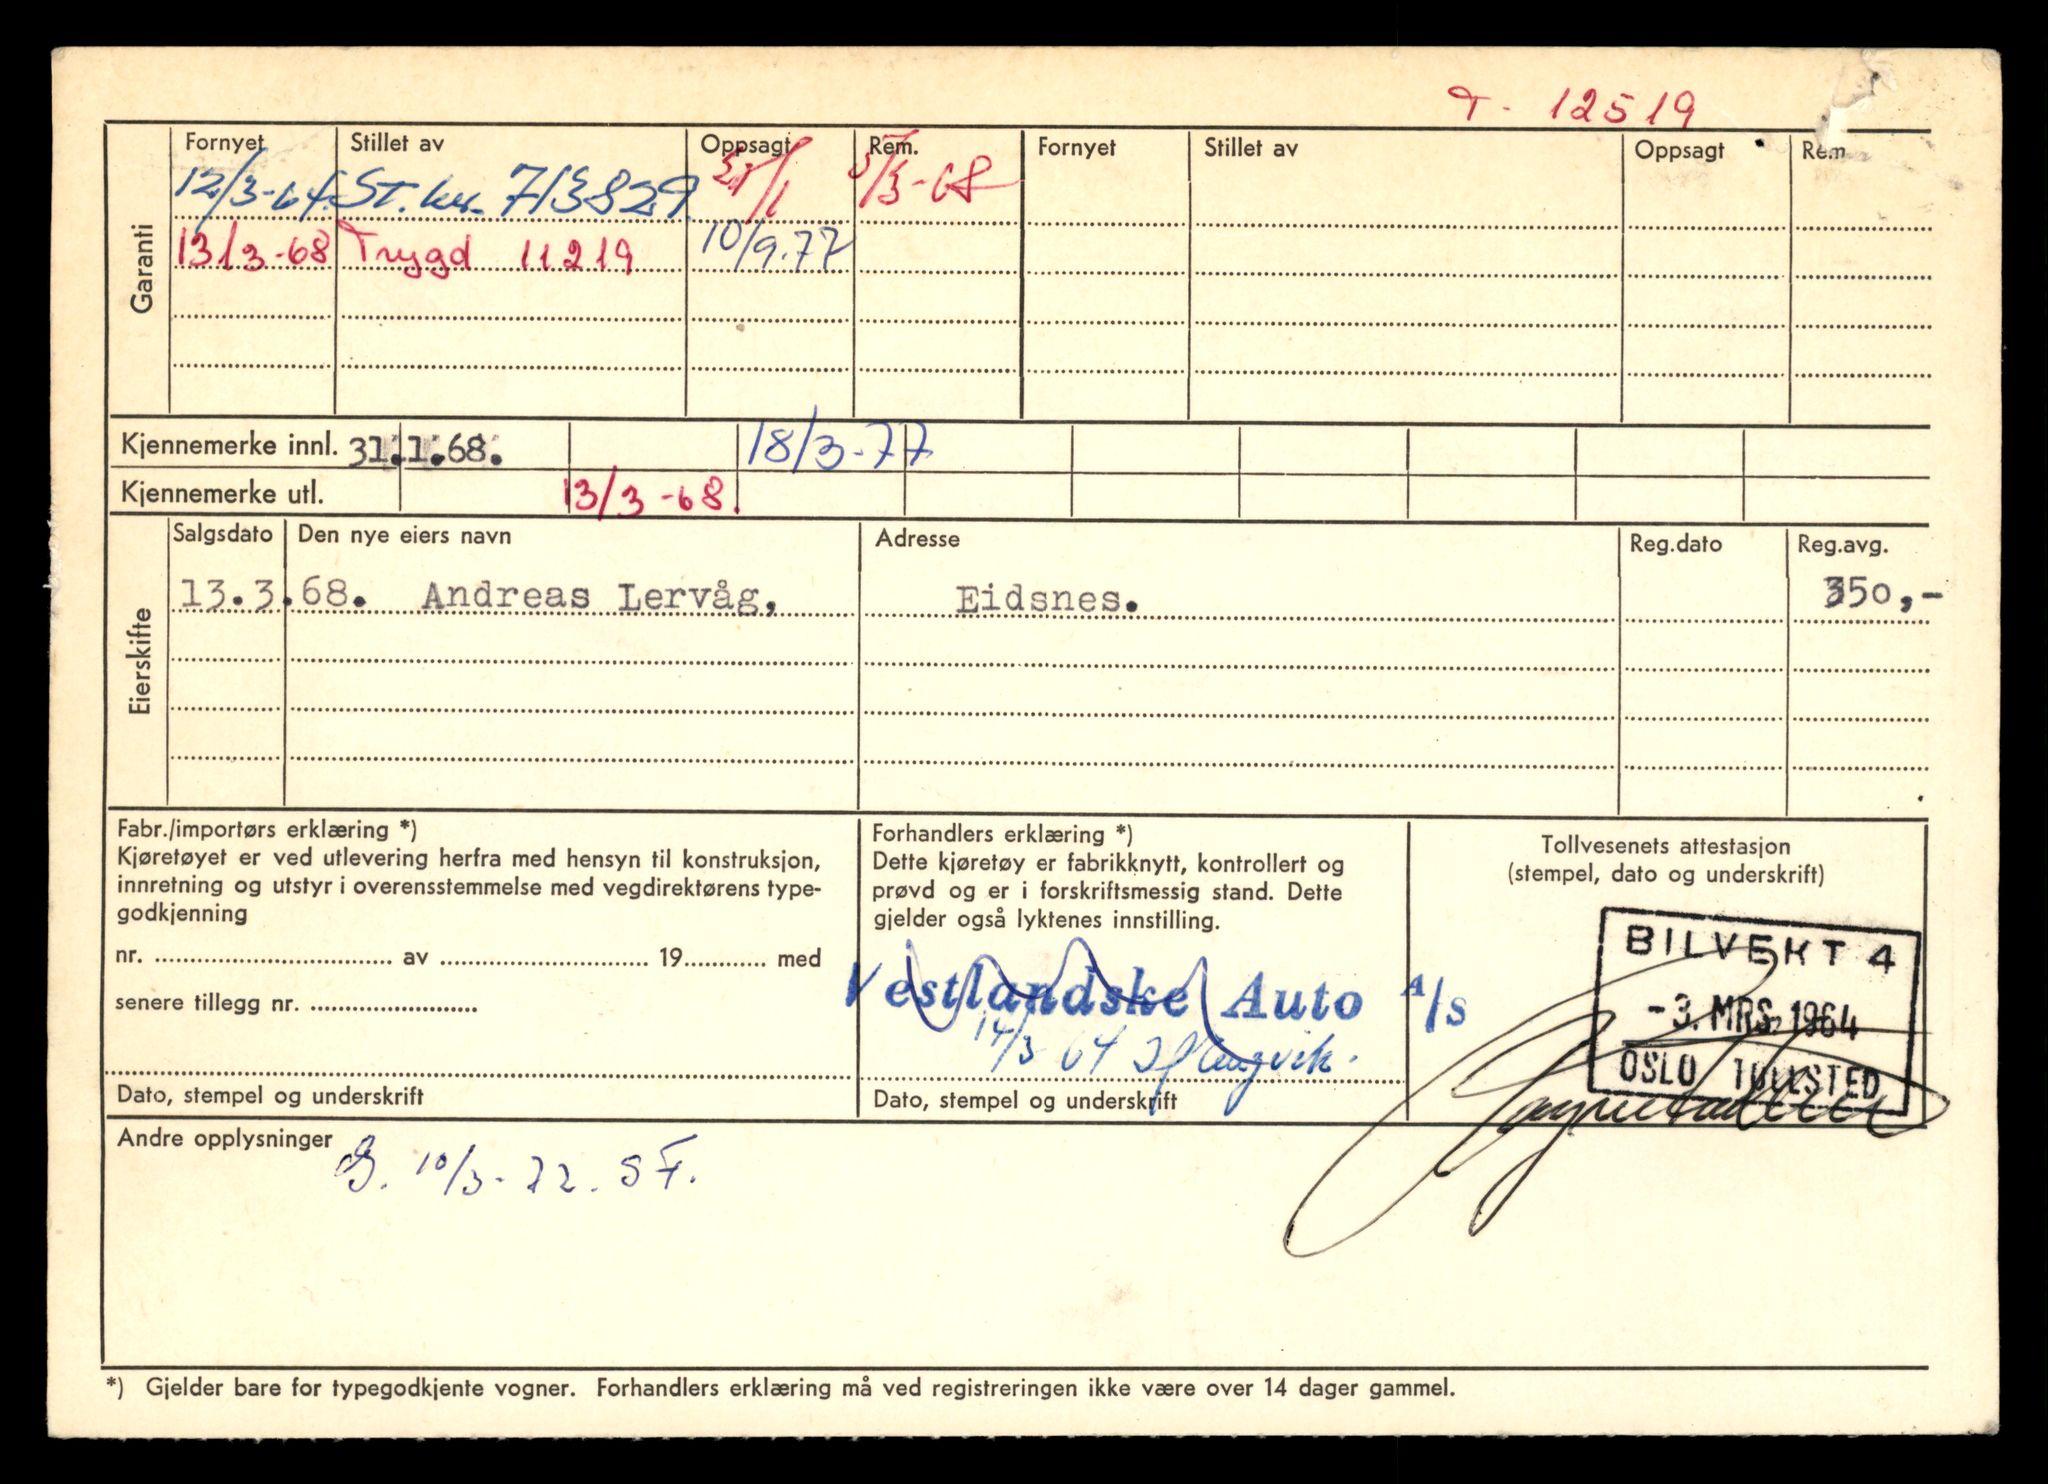 T - 12519
Garanti
Fornyet Stillet av Oppsagt Rem. Fornyet Stillet av Oppsagt Rem
12/3-64. 713829 5/3-68
13/3-68 Trygd 11219 10/9.77
Kjennemerke innl. 31.1.68. 18/3-77
Kjennemerke utl. 13/3-68.
Eierskifte
Salgsdato Den nye eiers navn Adresse Reg.dato Reg.avg.
13.3.68. Andreas Lervåg, Eidsnes. 350,-
Fabr./importørs erklæring *)
Kjøretøyet er ved utlevering herfra med hensyn til konstruksjon,
innretning og utstyr i overensstemmelse med vegdirektørens type-
godkjenning
nr. .......... av .......... 19.......... med
senere tillegg nr. ..........
Dato, stempel og underskrift
Forhandlers erklæring *)
Dette kjøretøy er fabrikknytt, kontrollert og
prøvd og er i forskriftsmessig stand. Dette
gjelder også lyktenes innstilling.
Vestlandske Auto A/S
14/3 64
Dato, stempel og underskrift
Tollvesenets attestasjon
(stempel, dato og underskrift)
BILVEKT 4
-3. MRS. 1964
OSLO TOLLSTED
Andre opplysninger
G. 10/3-72. SF.
*) Gjelder bare for typegodkjente vogner. Forhandlers erklæring må ved registreringen ikke være over 14 dager gammel.